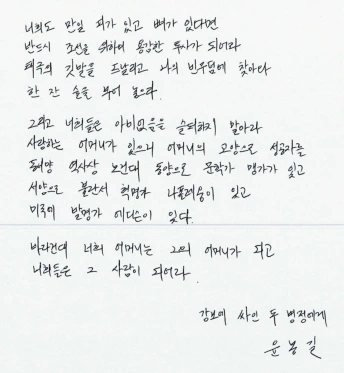 너희도 만일 피가 있고 뼈가 있다면
반드시 조선을 위하여 용감한 투사가 되어라
태극의 깃발을 드날리고 나의 빈무덤에 찾아와
한 잔 술을 부어 놓으라.
그리고 너희들은 아비없음을 슬퍼하지 말아라
사랑하는 어머니가 있으니 어머니의 교양으로 성공자를
동서양 역사상 보건대 동양으로 문학가 맹가가 있고
서양으로 불란서 혁명가 나폴레옹이 있고
미국의 발명가 에디슨이 있다.
바라건대 너희 어머니는 그의 어머니가 되고
너희들은 그 사람이 되어라.
강보에 싸인 두 병정에게
윤봉길